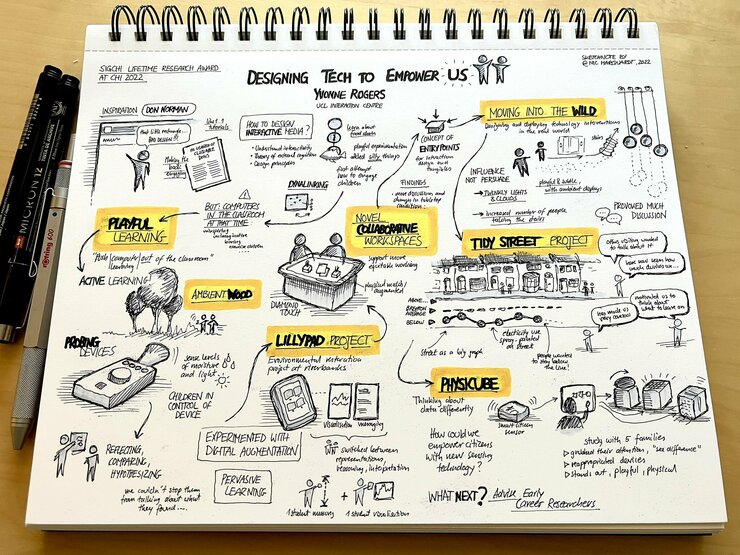 SIGCHI LIFETIME RESEARCH AWARD
AT CHI 2022
DESIGNING TECH TO EMPOWER US
YVONNE ROGERS
UCL INTERACTION CENTRE
SKETCHNOTE BY
@NIC MARQUARDT, 2022
INSPIRATION
DON NORMAN
BAD DESIGN!!
Making the book engaging
HOW TO DESIGN
INTERACTIVE MEDIA?
• Understand interactivity
• Theory of external cognition
• Design principles
learn about
food chains
playful experimentation
added silly things
first attempt
how to engage
children
CONCEPT OF
ENTRYPOINTS
for interaction
design and
tangibles
MOVING INTO THE WILD
Designing and deploying technology interventions
in the real world
stairs
INFLUENCE
NOT PERSUADE
playful & subtle
with ambient displays
→ TWINKLY LIGHTS
& CLOUDS
→ Increased number of people
taking the stairs
PROVOKED MUCH
DISCUSSION
DYNALINKING
BUT: COMPUTERS
IN THE CLASSROOM
AT THAT TIME
FINDINGS
PLAYFUL
LEARNING
"Take computers out of the classroom"
learning!
ACTIVE LEARNING!
AMBIENT WOOD
NOVEL
COLLABORATIVE
WORKSPACES
support more
equitable working
DIAMOND
TOUCH
TIDY STREET PROJECT
others visiting wanted
to talk about it
motivated us to
think about
what to leave on
ABOVE...
AVERAGE
BELOW
electricity use
spray-painted
on street
street as a big graph
people wanted
to stay below
the line!
PROBING
DEVICES
sense levels
of moisture
and light...
CHILDREN IN
CONTROL OF
DEVICE
LILLYPAD PROJECT
Environmental restoration
project at riverbanks
visualisation
EXPERIMENTED WITH
DIGITAL AUGMENTATION
switched between
representations,
reasoning, interpretation
PHYSICUBE
Thinking about
data differently
smart citizen
sensor
How could we
empower citizens
with new sensing
technology?
study with 5 families
▷ guided their attention, "see difference"
▷ reappropriated devices
▷ stands out, playful, physical
REFLECTING,
COMPARING,
HYPOTHESIZING
we couldn't stop them
from talking about what
they found....
PERVASIVE
LEARNING
1 student
+
1 student visualisation
WHAT NEXT? Advise Early
Career Researchers
MICRON 12
rotring 600